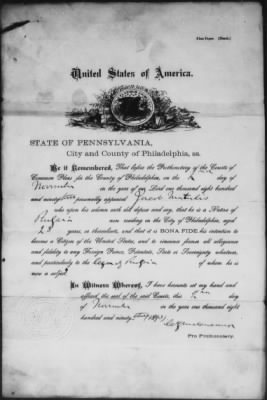 First Paper (Decln.)
United States of America.
STATE OF PENNSYLVANIA,
City and County of Philadelphia, ss.
Be it Remembered, That before the Prothonotary of the Courts of
Common Pleas for the County of Philadelphia, on the day of
November in the year of our Lord one thousand eight hundred
and ninety personally appeared Jacob
who upon his solemn oath did depose and say, that he is a Native of
Russia now residing in the City of Philadelphia, aged
28 years, or thereabout, and that it is BONA FIDE his intention to
become a Citizen of the United States, and to renounce forever all allegiance
and fidelity to any Foreign Prince, Potentate, State or Sovereignty whatever,
and particularly to the Czar of Russia of whom he is
now a subject.
In Witness Whereof, I have hereunto set my hand and
affixed the seal of the said Courts, this day
of November in the year one thousand eight
hundred and ninety
Pro Prothonotary.